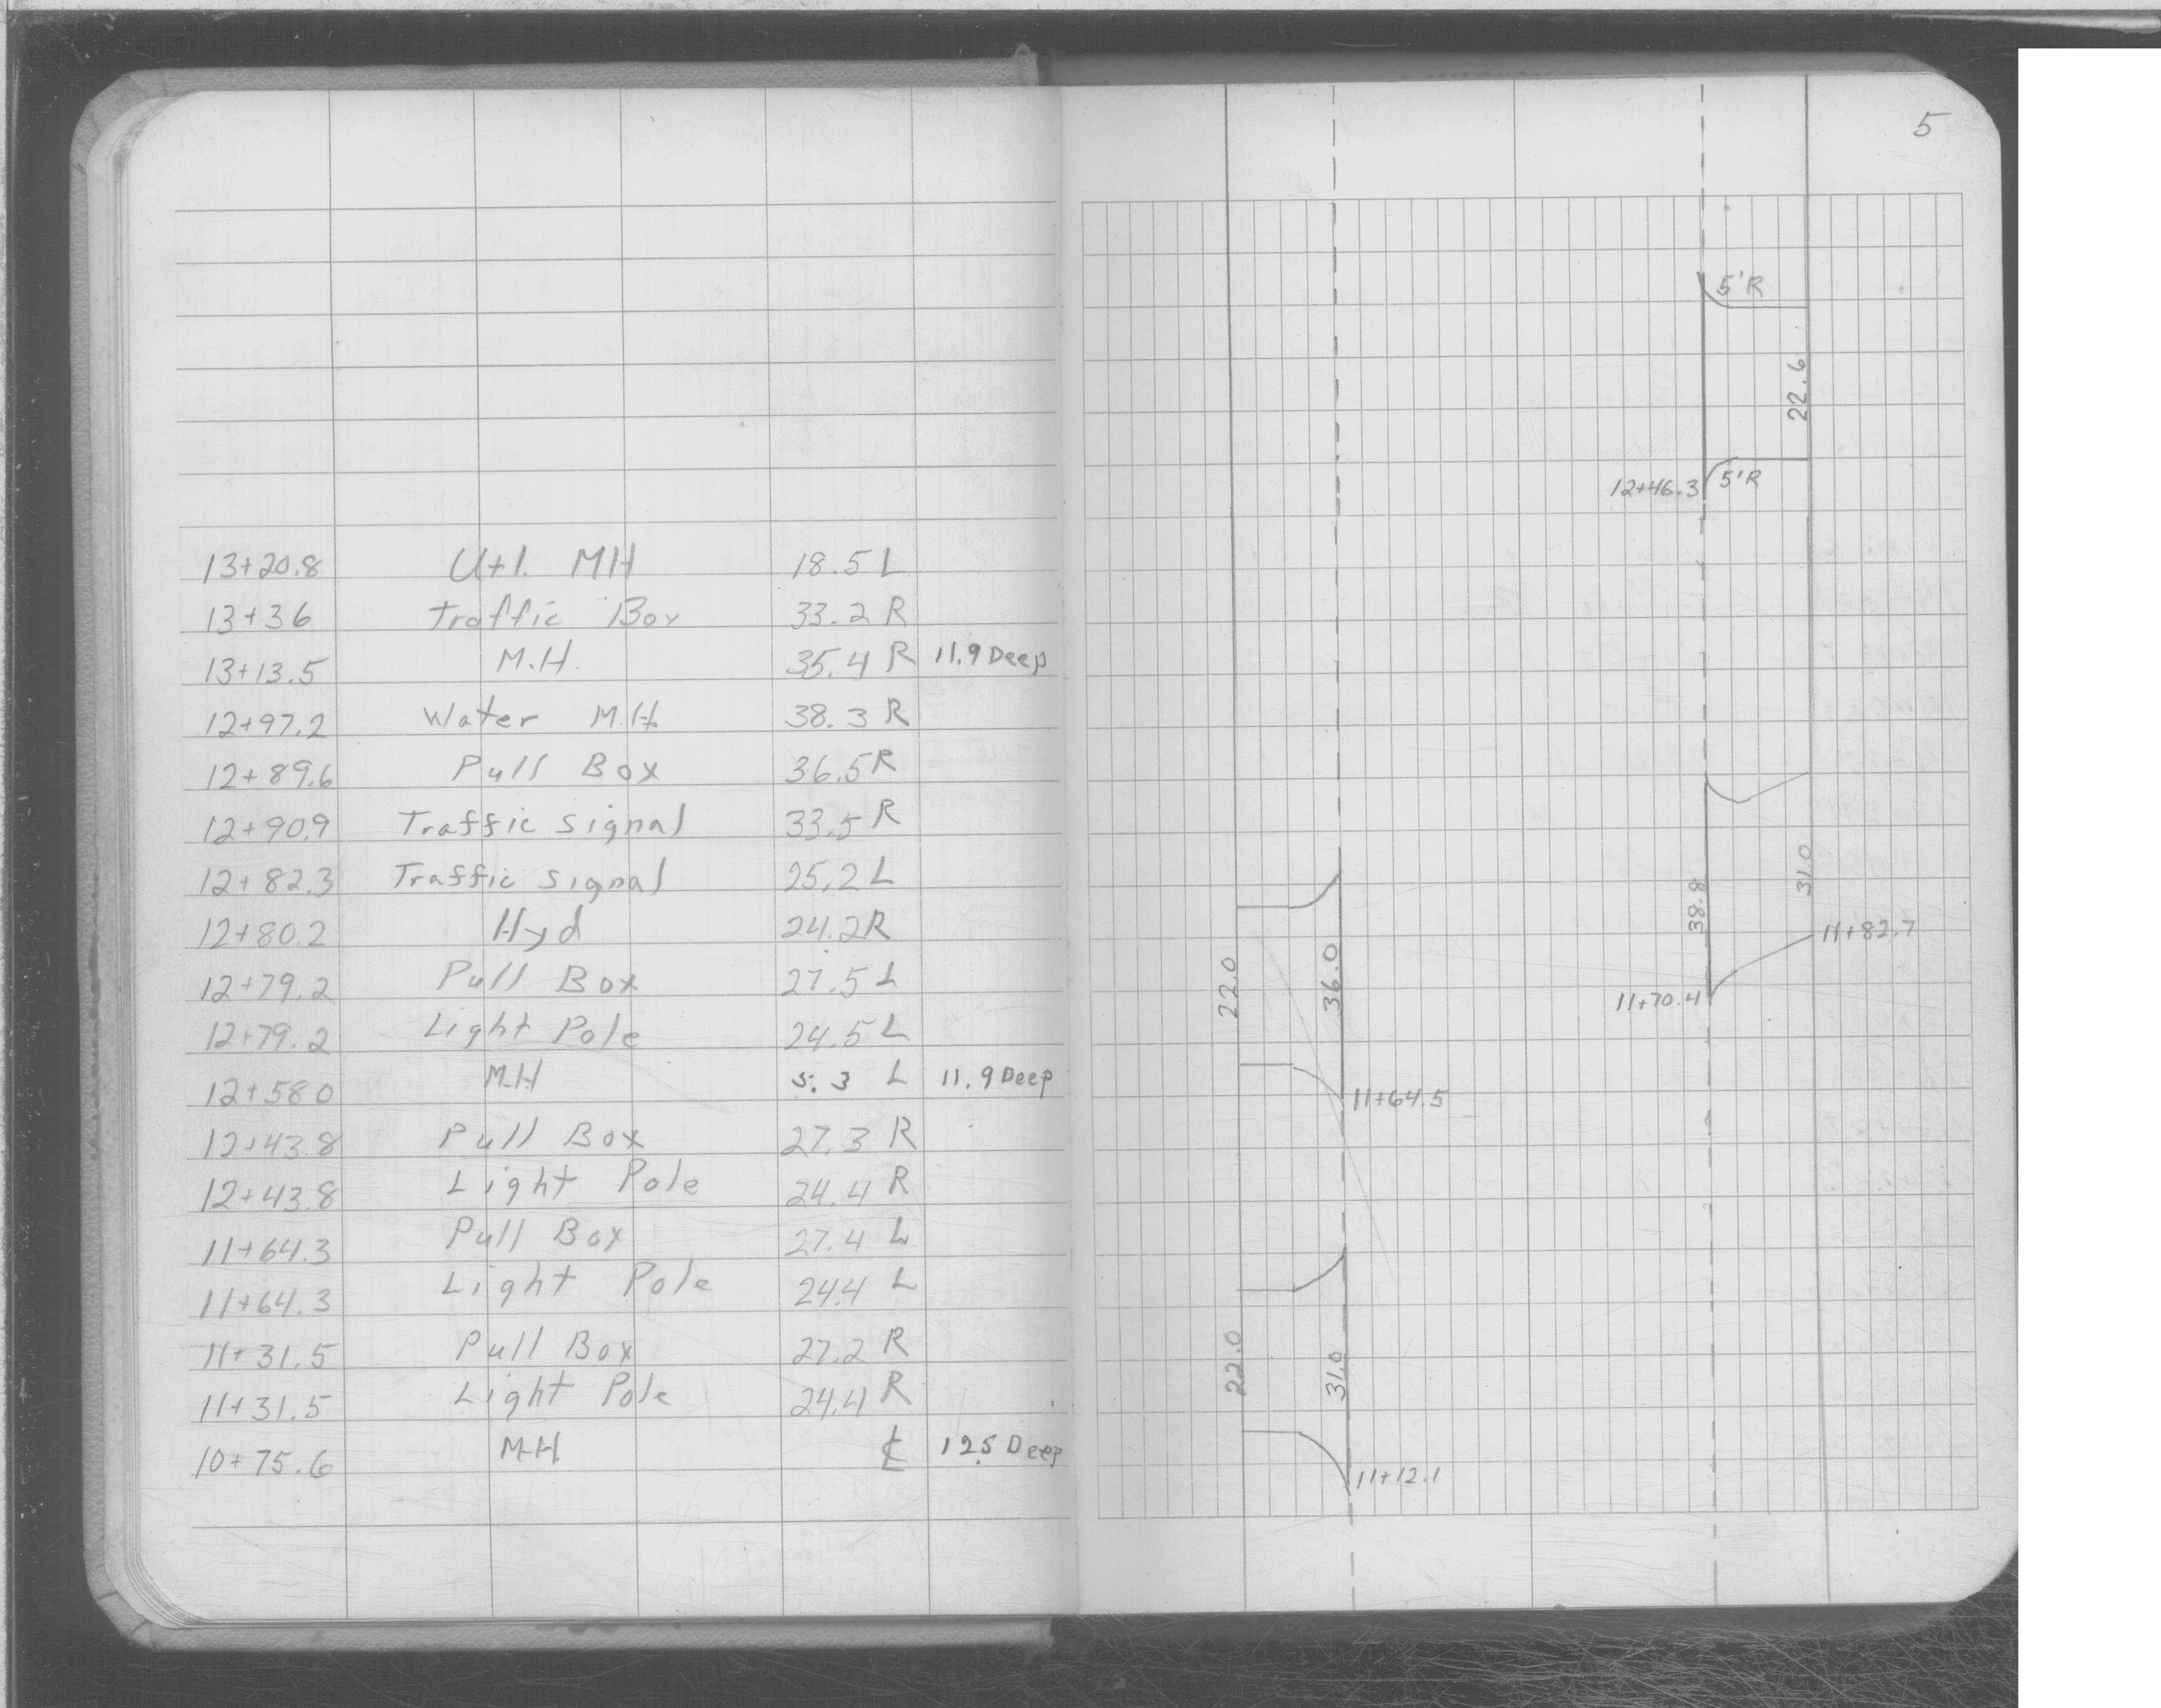 13+20.8 Utl. MH 18.5 L
13+36 Traffic Box 33.2 R
13+13.5 M.H. 35.4 R 11.9 Deep
12+97.2 Water M.H. 38.3 R
12+89.6 Pull Box 36.5 R
12+90.9 Traffic Signal 33.5 R
12+82.3 Traffic Signal 25.2 L
12+80.2 Hyd 24.2 R
12+79.2 Pull Box 27.5 L
12+79.2 Light Pole 24.5 L
12+58.0 M.H 5.3 L 11.9 Deep
12+43.8 Pull Box 27.3 R
12+43.8 Light Pole 24.4 R
11+64.3 Pull Box 27.4 L
11+64.3 Light Pole 24.4 L
11+31.5 Pull Box 27.2 R
11+31.5 Light Pole 24.4 R
10+75.6 M.H. ℄ 12.5 Deep
5
5'R
22.6
12+46.3 5'R
31.0
38.8
11+82.7
11+70.4
22.0
36.0
11+64.5
22.0
31.0
11+12.1